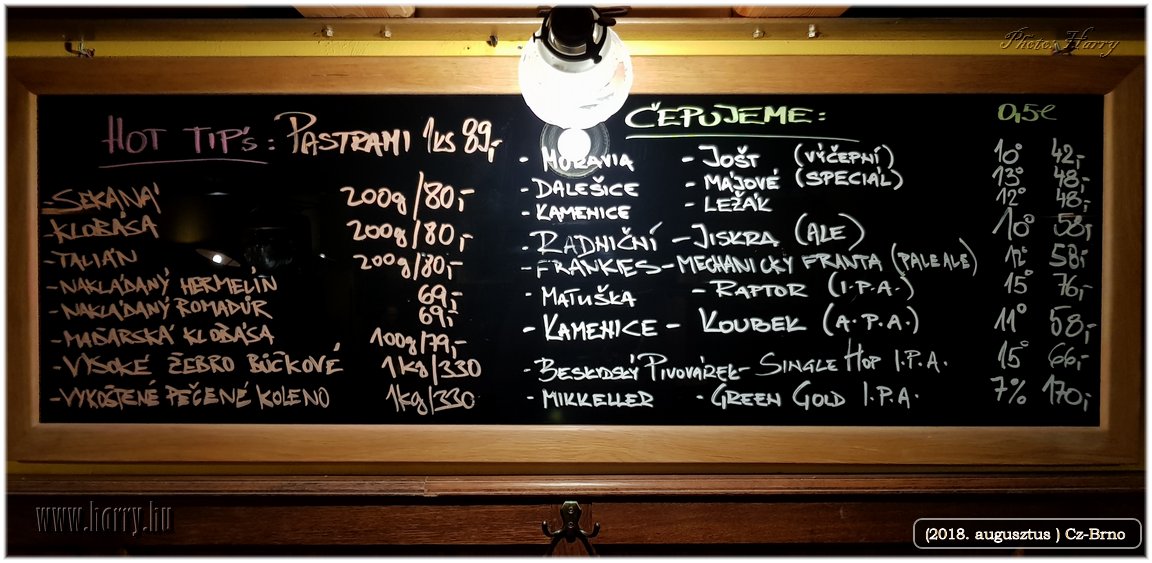 Photo: Harry
HOT TIP's: PASTRAMI 1ks 89,-
- SEKANÁ 200g/80,-
- KLOBÁSA 200g/80,-
- TALIÁN 200g/80,-
- NAKLÁDANÝ HERMELÍN 69,-
- NAKLÁDANÝ ROMADÚR 69,-
- MAĎARSKÁ KLOBÁSA 100g/79,-
- VYSOKÉ ŽEBRO BŮČKOVÉ 1kg/330
- VYKOSTĚNÉ PEČENÉ KOLENO 1kg/330
ČEPUJEME: 0,5l
- MORAVIA - JOŠT (VÝČEPNÍ) 10° 42,-
- DALEŠICE - MÁJOVÉ (SPECIÁL) 13° 48,-
- KAMENICE - LEŽÁK 12° 48,-
- RADNIČNÍ - JISKRA (ALE) 10° 58,-
- FRANKIES - MECHANICKÝ FRANTA (PALE ALE) 12° 58,-
- MATUŠKA - RAPTOR (I.P.A.) 15° 76,-
- KAMENICE - KOUBEK (A.P.A.) 11° 58,-
- BESKYDSKÝ PIVOVÁREK - SINGLE HOP I.P.A. 15° 66,-
- MIKKELLER - GREEN GOLD I.P.A. 7% 170,-
www.harry.hu
(2018. augusztus ) Cz-Brno